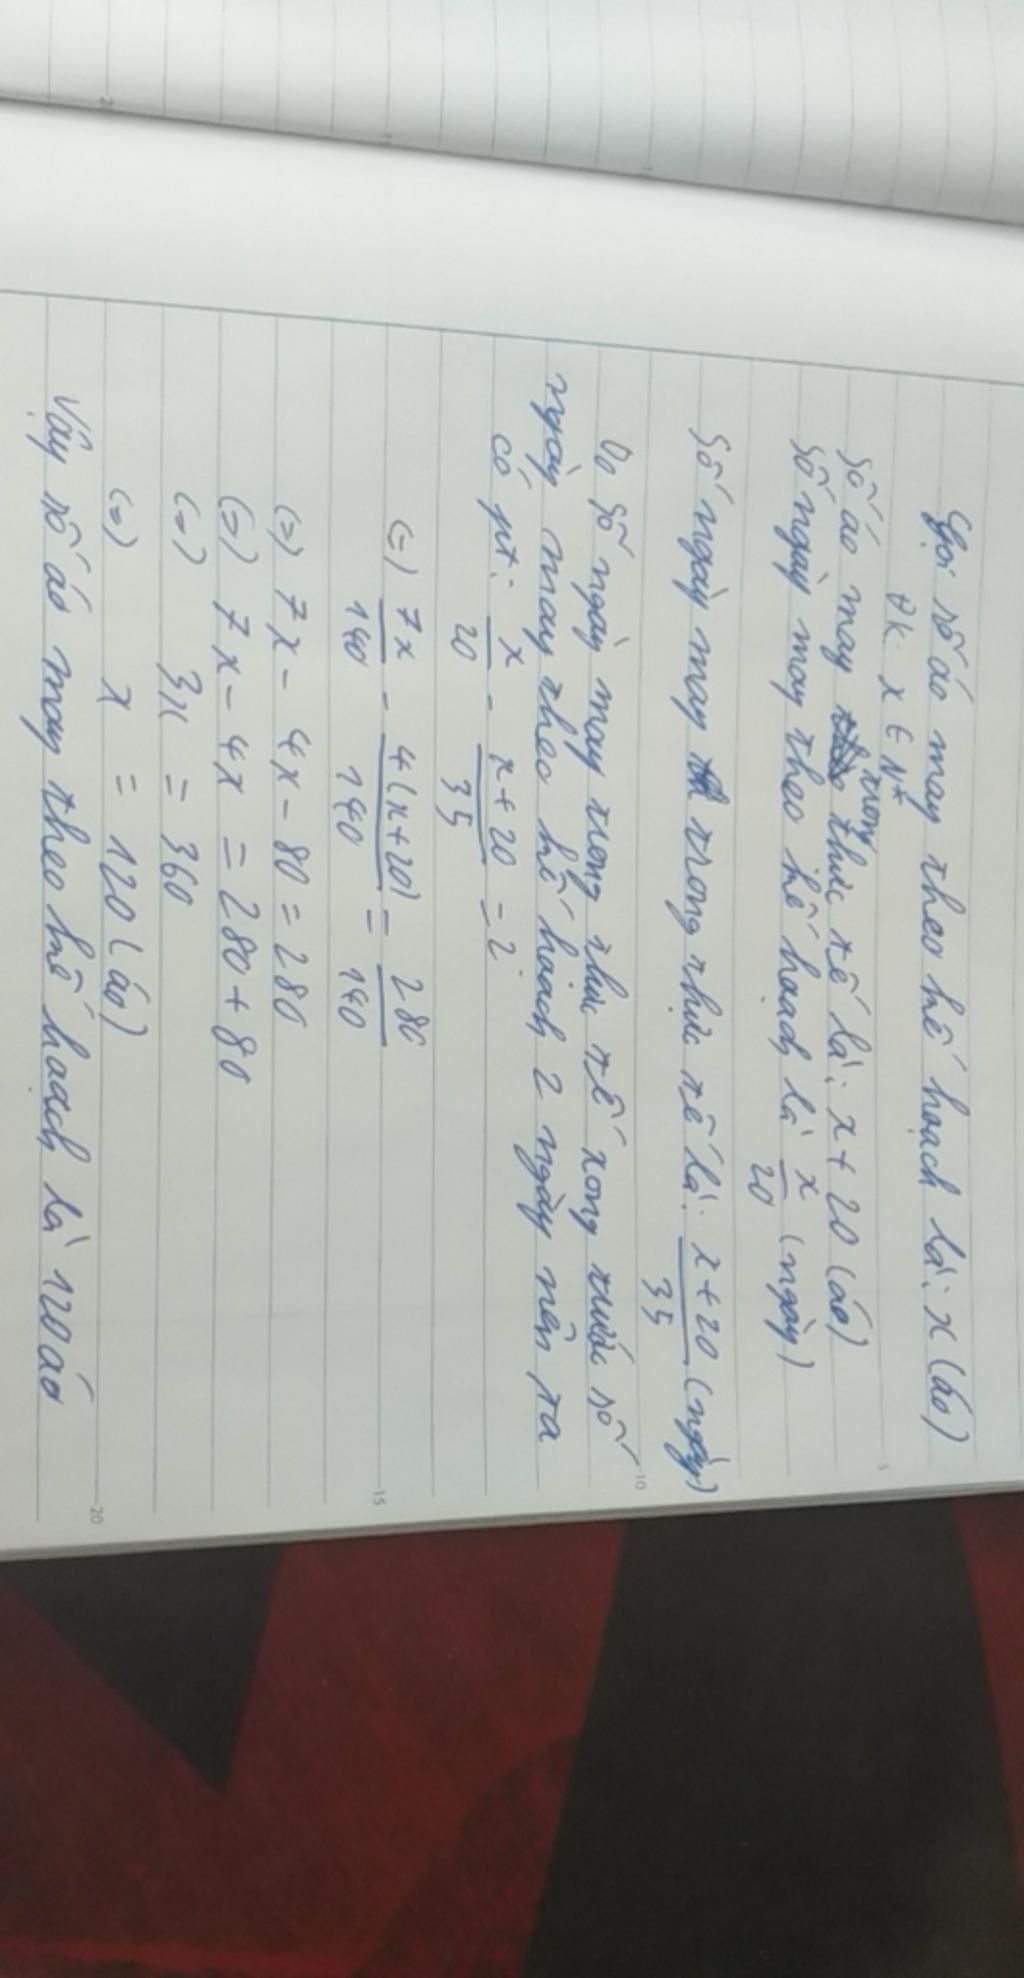 Gọi số áo may theo kế hoạch là: x (áo)
Đk: x ∈ N*
trong
Số áo may thực tế là: x + 20 (áo)
Số ngày may theo kế hoạch là x/20 (ngày)
5
Số ngày may trong thực tế là: x+20/35 (ngày)
Do số ngày may trong thực tế xong trước số
10
ngày may theo kế hoạch 2 ngày nên ta
có pt: x/20 - x+20/35 = 2
(=) 7x/140 - 4(x+20)/140 = 280/140
15
(=) 7x - 4x - 80 = 280
(=) 7x - 4x = 280 + 80
(=) 3x = 360
(=) x = 120 (áo)
20
Vậy số áo may theo kế hoạch là 120 áo